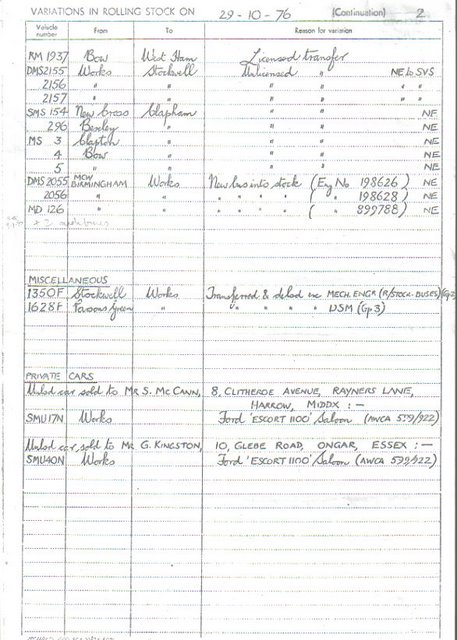 VARIATIONS IN ROLLING STOCK ON 29-10-76 (Continuation) 2
Vehicle number From To Reason for variation
RM 1937 Bow West Ham Licensed transfer
DMS 2155 Works Stockwell Unlicensed " NE to SVS
2156 " " " " " "
2157 " " " " " "
SMS 154 New Cross Clapham " " NE
296 Bexley " " " NE
MS 3 Clapton " " " NE
4 Bow " " " NE
5 " " " " NE
DMS 2055 MCW BIRMINGHAM Works New bus into stock (Eng No 198626) NE
2056 " " " " " " ( " 198628) NE
MD 126 " " " " " " ( " 899788) NE
MISCELLANEOUS
1350F Stockwell Works Transferred & deltd inc MECH. ENGR (R/STOCK-BUSES) (Gp3)
1628F Parsons Green " " " " " DSM (Gp3)
PRIVATE CARS
Unlsd car sold to MR S. MCCANN, 8, CLITHEROE AVENUE, RAYNERS LANE,
HARROW, MIDDX :—
SMU17N Works Ford 'ESCORT 1100' Saloon (AWCA 599/922)
Unlsd car sold to MR G. KINGSTON, 10, GLEBE ROAD, ONGAR, ESSEX :—
SMU40N Works Ford 'ESCORT 1100' Saloon (AWCA 599/922)